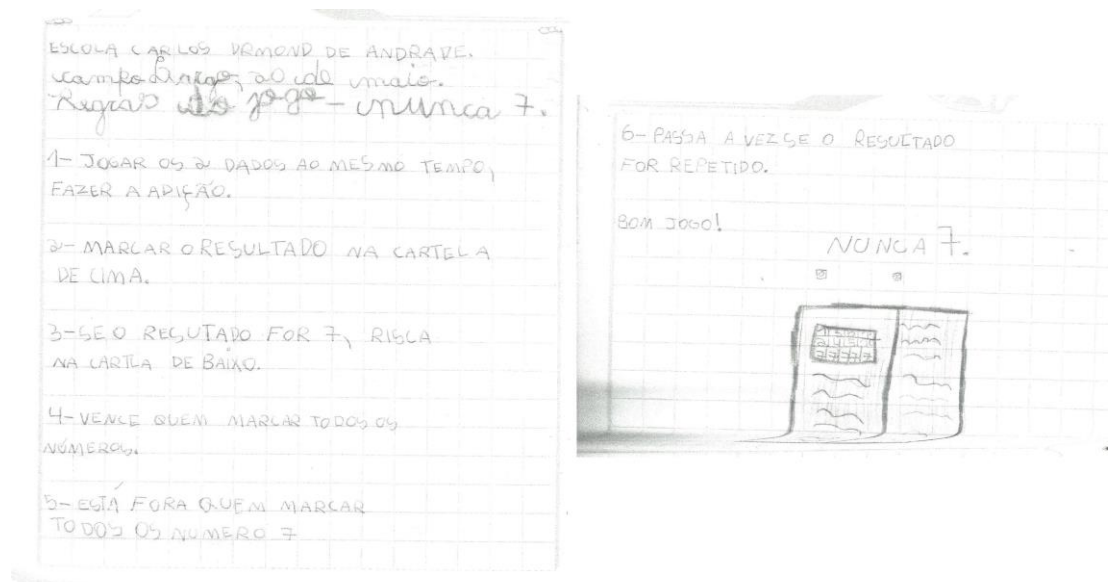 ESCOLA CARLOS DRMOND DE ANDRADE.
campo 20 de maio.
Regras do jogo - nunca 7.
1- JOGAR OS 2 DADOS AO MESMO TEMPO,
FAZER A ADIÇÃO.
2- MARCAR O RESULTADO NA CARTELA
DE CIMA.
3- SE O RESUTADO FOR 7, RISCA
NA CARTLA DE BAIXO.
4- VENCE QUEM MARCAR TODOS OS
NÚMEROS.
5- ESTÁ FORA QUEM MARCAR
TODOS OS NUMERO 7
6- PASSA A VEZ SE O RESULTADO
FOR REPETIDO.
BOM JOGO!
NUNCA 7.